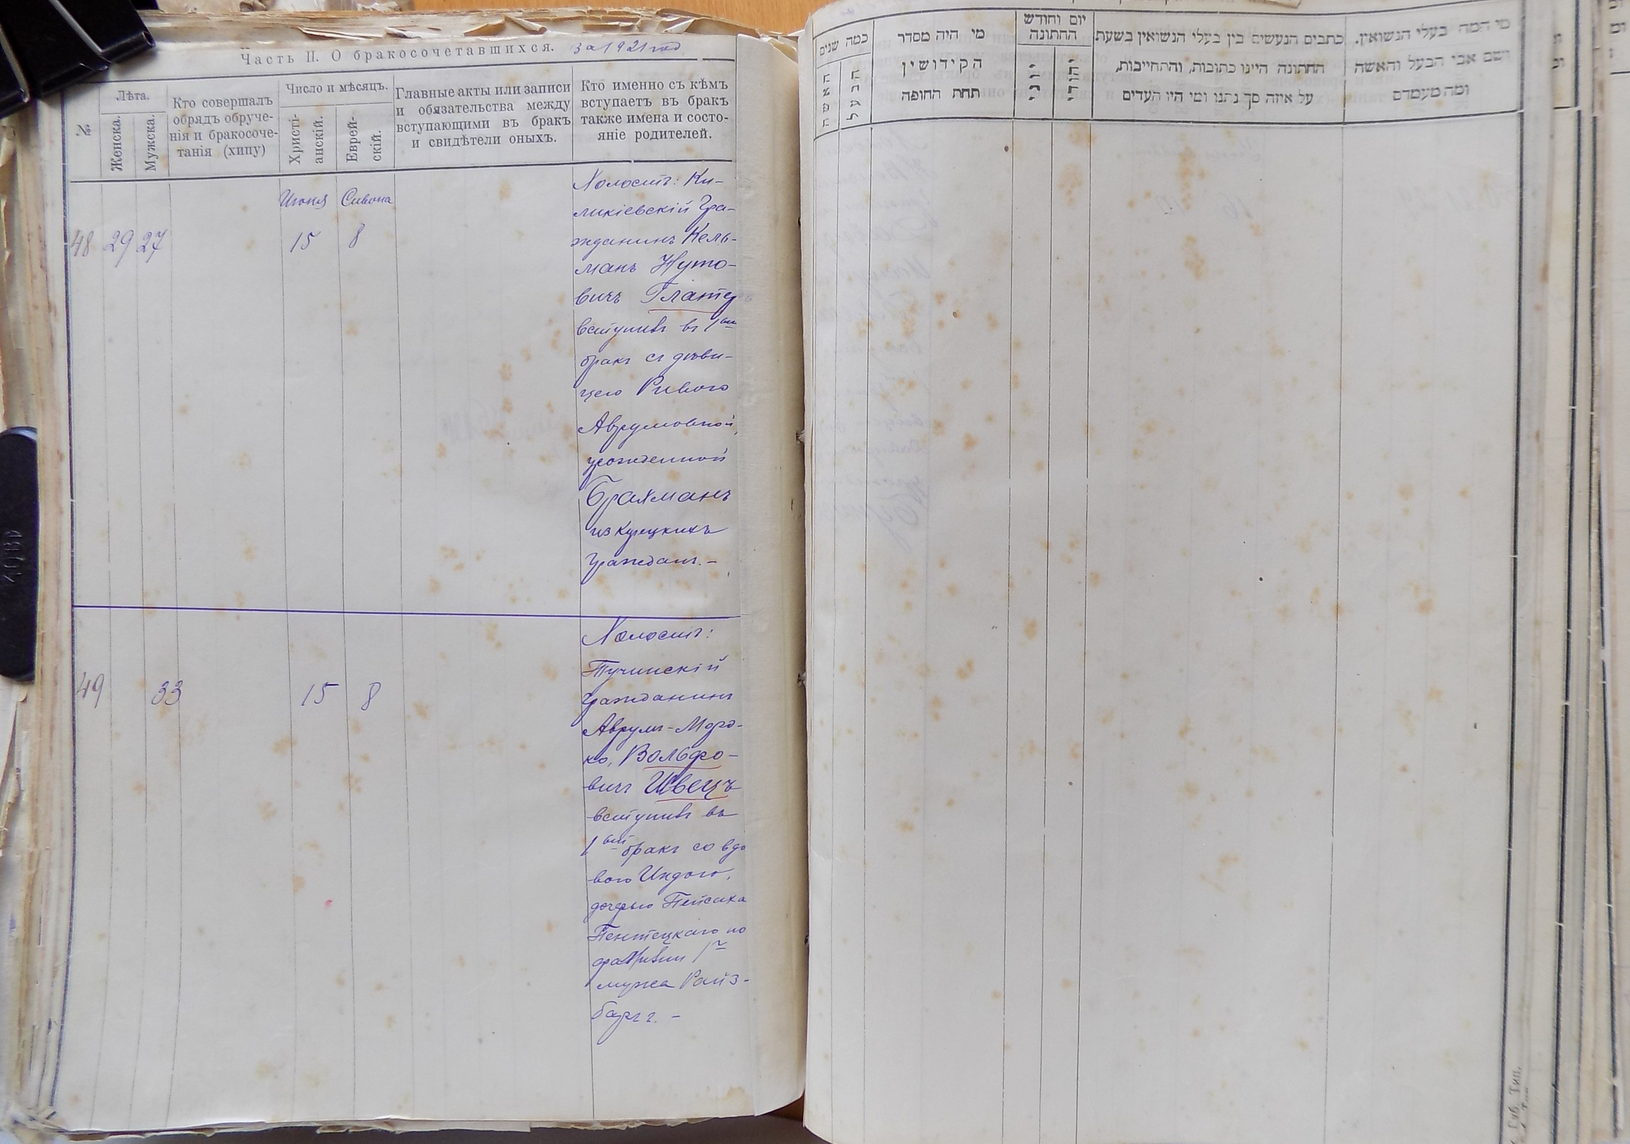 Часть II. О бракосочетавшихся. за 1921 год
№
Лѣта.
Женска.
Мужска.
Кто совершалъ
обрядъ обруче-
нія и бракосоче-
танія (хипу)
Число и мѣсяцъ.
Христі-
анскій.
Еврей-
скій.
Главные акты или записи
и обязательства между
вступающими въ бракъ
и свидѣтели оныхъ.
Кто именно съ кѣмъ
вступаетъ въ бракъ
также имена и состо-
яніе родителей.
48 29 27
Июня Сивона
15 8
Холостъ: Ки-
ликіевскій Гра-
жданинъ Кель-
манъ Нуто-
вичъ
вступивъ въ 1ый
бракъ съ дѣви-
цею Ривою
Аврумовной,
урожденной
Брахманъ
из Корецкихъ
Граждан. –
49 33 15 8
Холостъ:
Тучинскій
Гражданинъ
Аврумъ-Мордо-
ко, Вольфо-
вичъ Швецъ
вступивъ въ
1ый бракъ со вдо
вою Индою,
дочерью Пейсаха
по
фамиліи 1го
мужа Райз-
бергъ. –
כמה שנים
האשה
הבעל
מי היה מסדר
הקידושין
תחת החופה
יום וחודש
החתונה
יווני
יהודי
כתבים הנעשים בין בעלי הנשואין בשעת
החתונה היינו כתובות, והתחייבות,
על איזה סך נתנו ומי היו העדים
מי המה בעלי הנשואין.
ושם אבי הבעל והאשה
ומה מעמדם